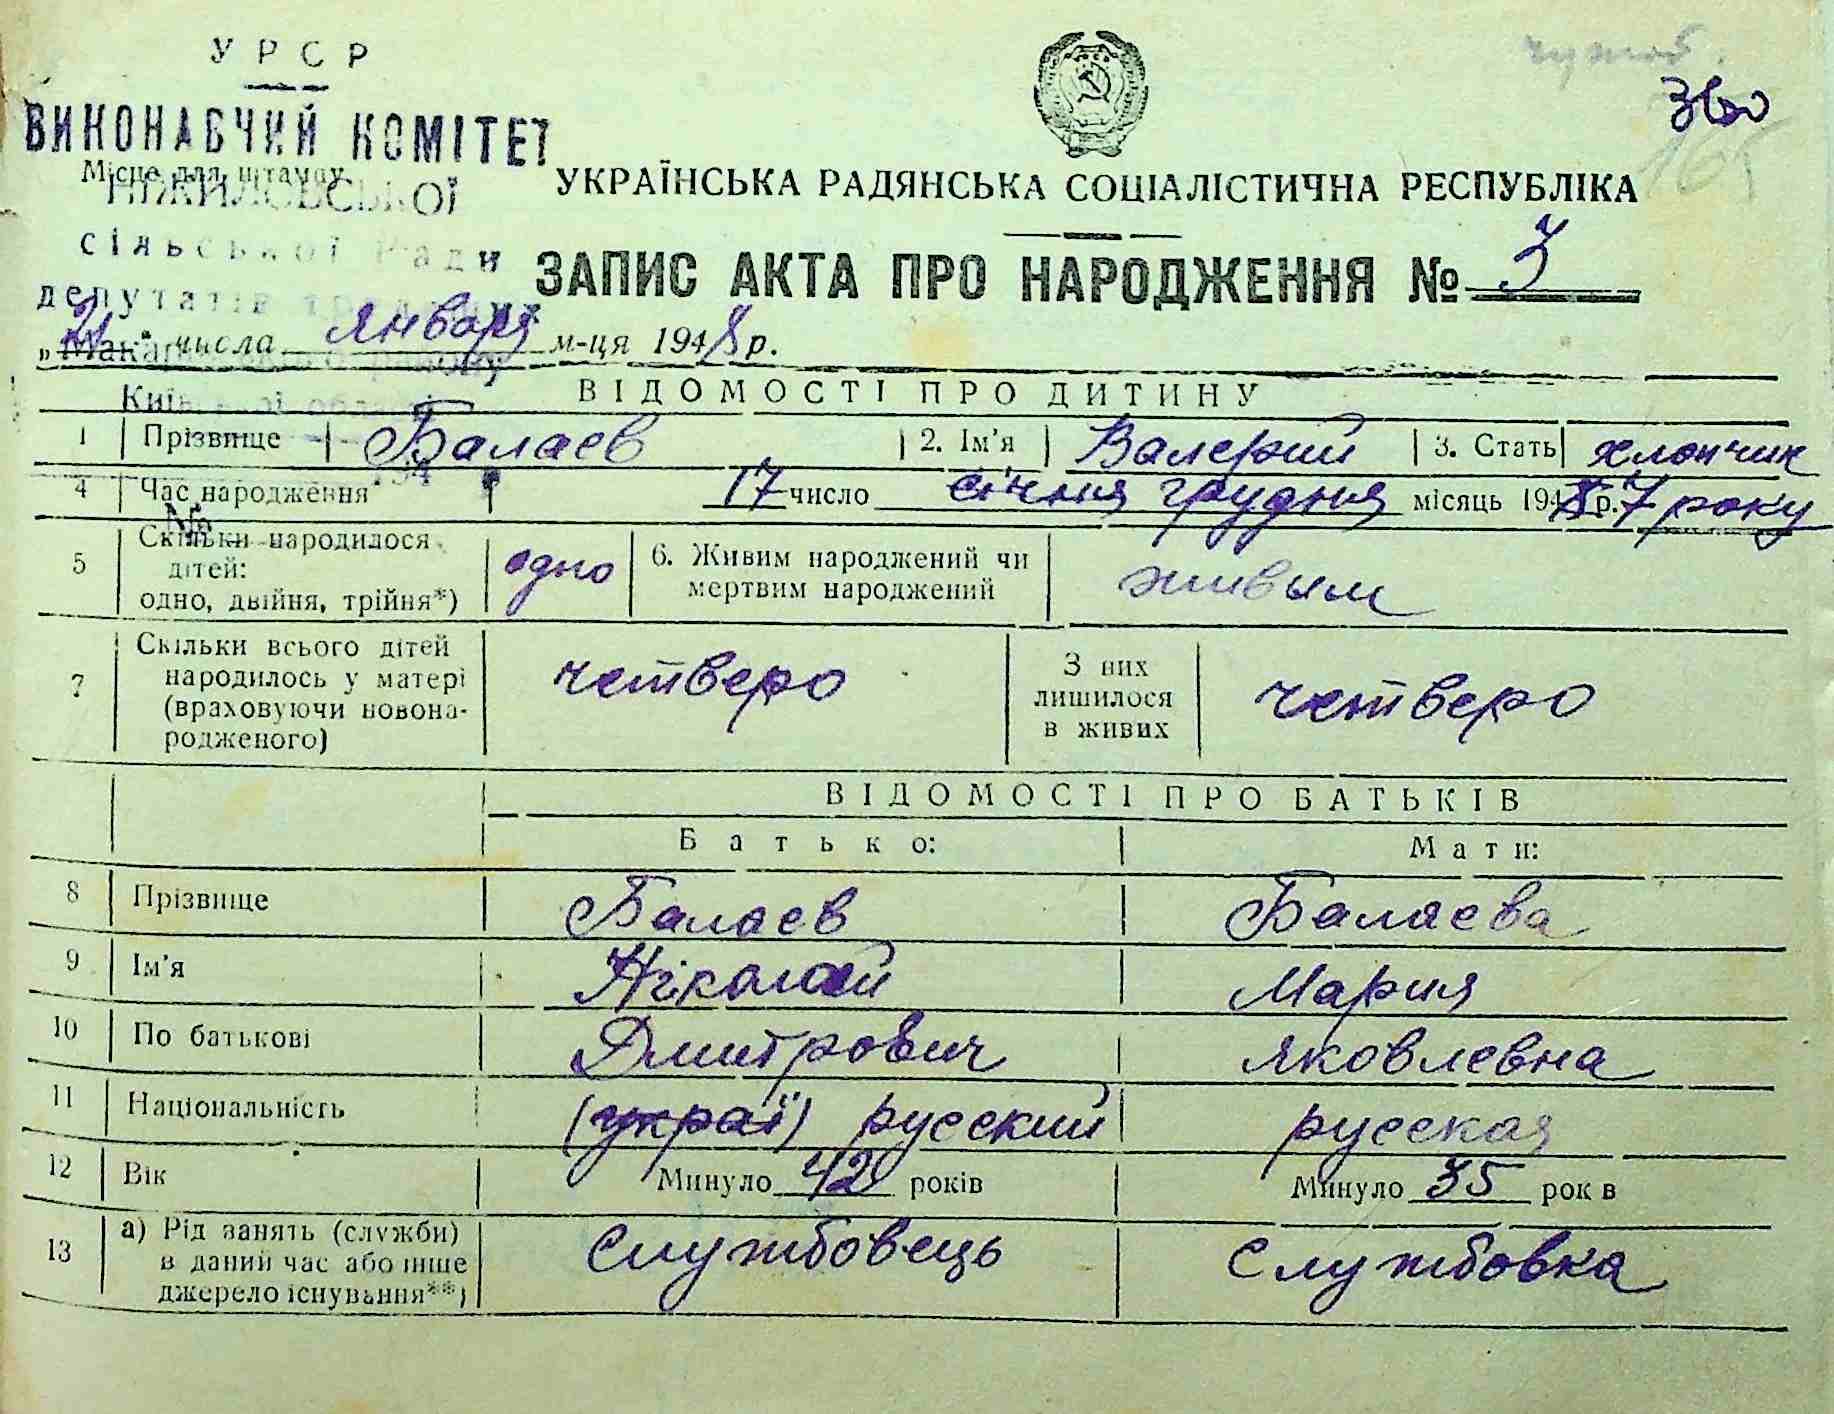 УРСР
ВИКОНАВЧИЙ КОМІТЕТ
Місце для штампу
НІЖИЛОВСЬКОЇ
УКРАЇНСЬКА РАДЯНСЬКА СОЦІАЛІСТИЧНА РЕСПУБЛІКА
сільської Ради
ЗАПИС АКТА ПРО НАРОДЖЕННЯ № 3
депутатів трудящих
„21" числа января м-ця 1948 р.
Макарівського району
ВІДОМОСТІ ПРО ДИТИНУ
Київської області
1 Прізвище Балаев 2. Ім'я Валерий 3. Стать хлопчик
194
4 Час народження 17 число січня грудня місяць 1948 р. 7 року
№
5 Скільки народилося дітей: одно, двійня, трійня*) одно 6. Живим народжений чи мертвим народжений живым
7 Скільки всього дітей народилось у матері (враховуючи новонародженого) четверо З них лишилося в живих четверо
ВІДОМОСТІ ПРО БАТЬКІВ
Батько: Мати:
8 Прізвище Балаев Балаева
9 Ім'я Ніколай Мария
10 По батькові Дмитрович Яковлевна
11 Національність (украї) русский русская
12 Вік Минуло 42 років Минуло 35 рок в
13 а) Рід занять (служби) в даний час або інше джерело існування**) Службовець Службовка